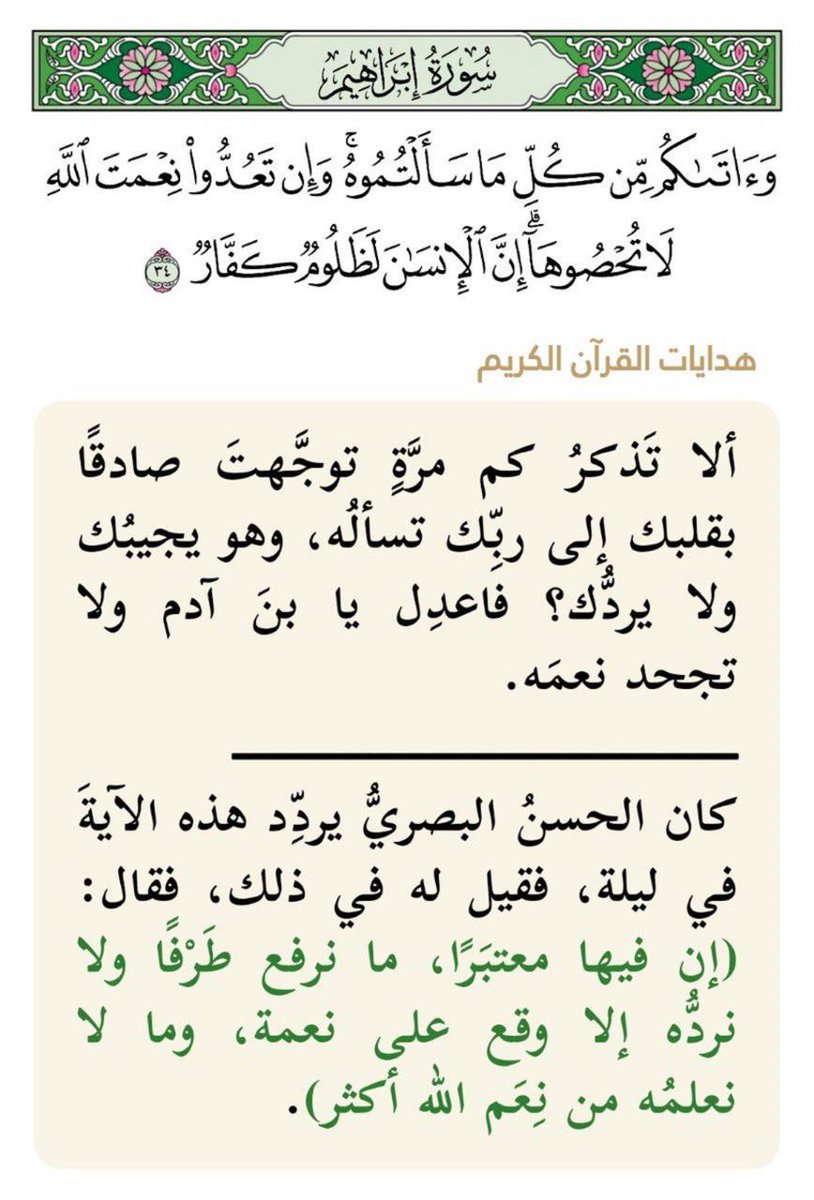 سُورَةُ إِبْرَاهِيم
وَءَاتَىٰكُم مِّن كُلِّ مَا سَأَلْتُمُوهُۚ وَإِن تَعُدُّوا۟ نِعْمَتَ ٱللَّهِ
لَا تُحْصُوهَآۗ إِنَّ ٱلْإِنسَٰنَ لَظَلُومٌ كَفَّارٌ ٣٤
هدايات القرآن الكريم
ألا تَذكرُ كم مرَّةٍ توجَّهتَ صادقًا
بقلبك إلى ربِّك تسألُه، وهو يجيبُك
ولا يردُّك؟ فاعدِل يا بنَ آدم ولا
تجحد نعمَه.
كان الحسنُ البصريُّ يردِّد هذه الآيةَ
في ليلة، فقيل له في ذلك، فقال:
(إن فيها معتبَرًا، ما نرفع طَرْفًا ولا
نردُّه إلا وقع على نعمة، وما لا
نعلمُه من نِعَم الله أكثر).